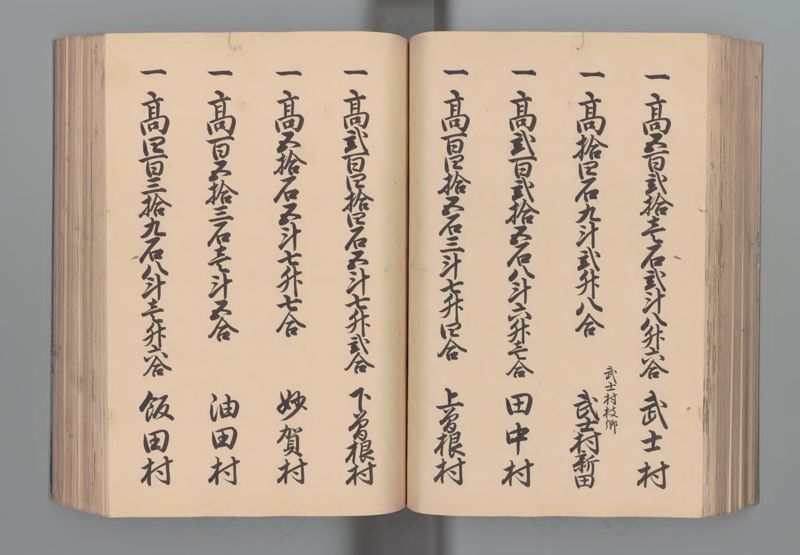 一高五百弐拾壱石弐斗八升六合 武士村
一高拾四石九斗弐升八合 武士村枝郷 武士村新田
一高弐百弐拾五石八斗六升壱合 田中村
一高百四拾五石三斗七升四合 上曽根村
一高弐百四拾四石五斗七升弐合 下曽根村
一高五拾石五斗七升七合 妙賀村
一高百五拾三石壱斗五合 油田村
一高四百三拾九石八斗壱升六合 飯田村